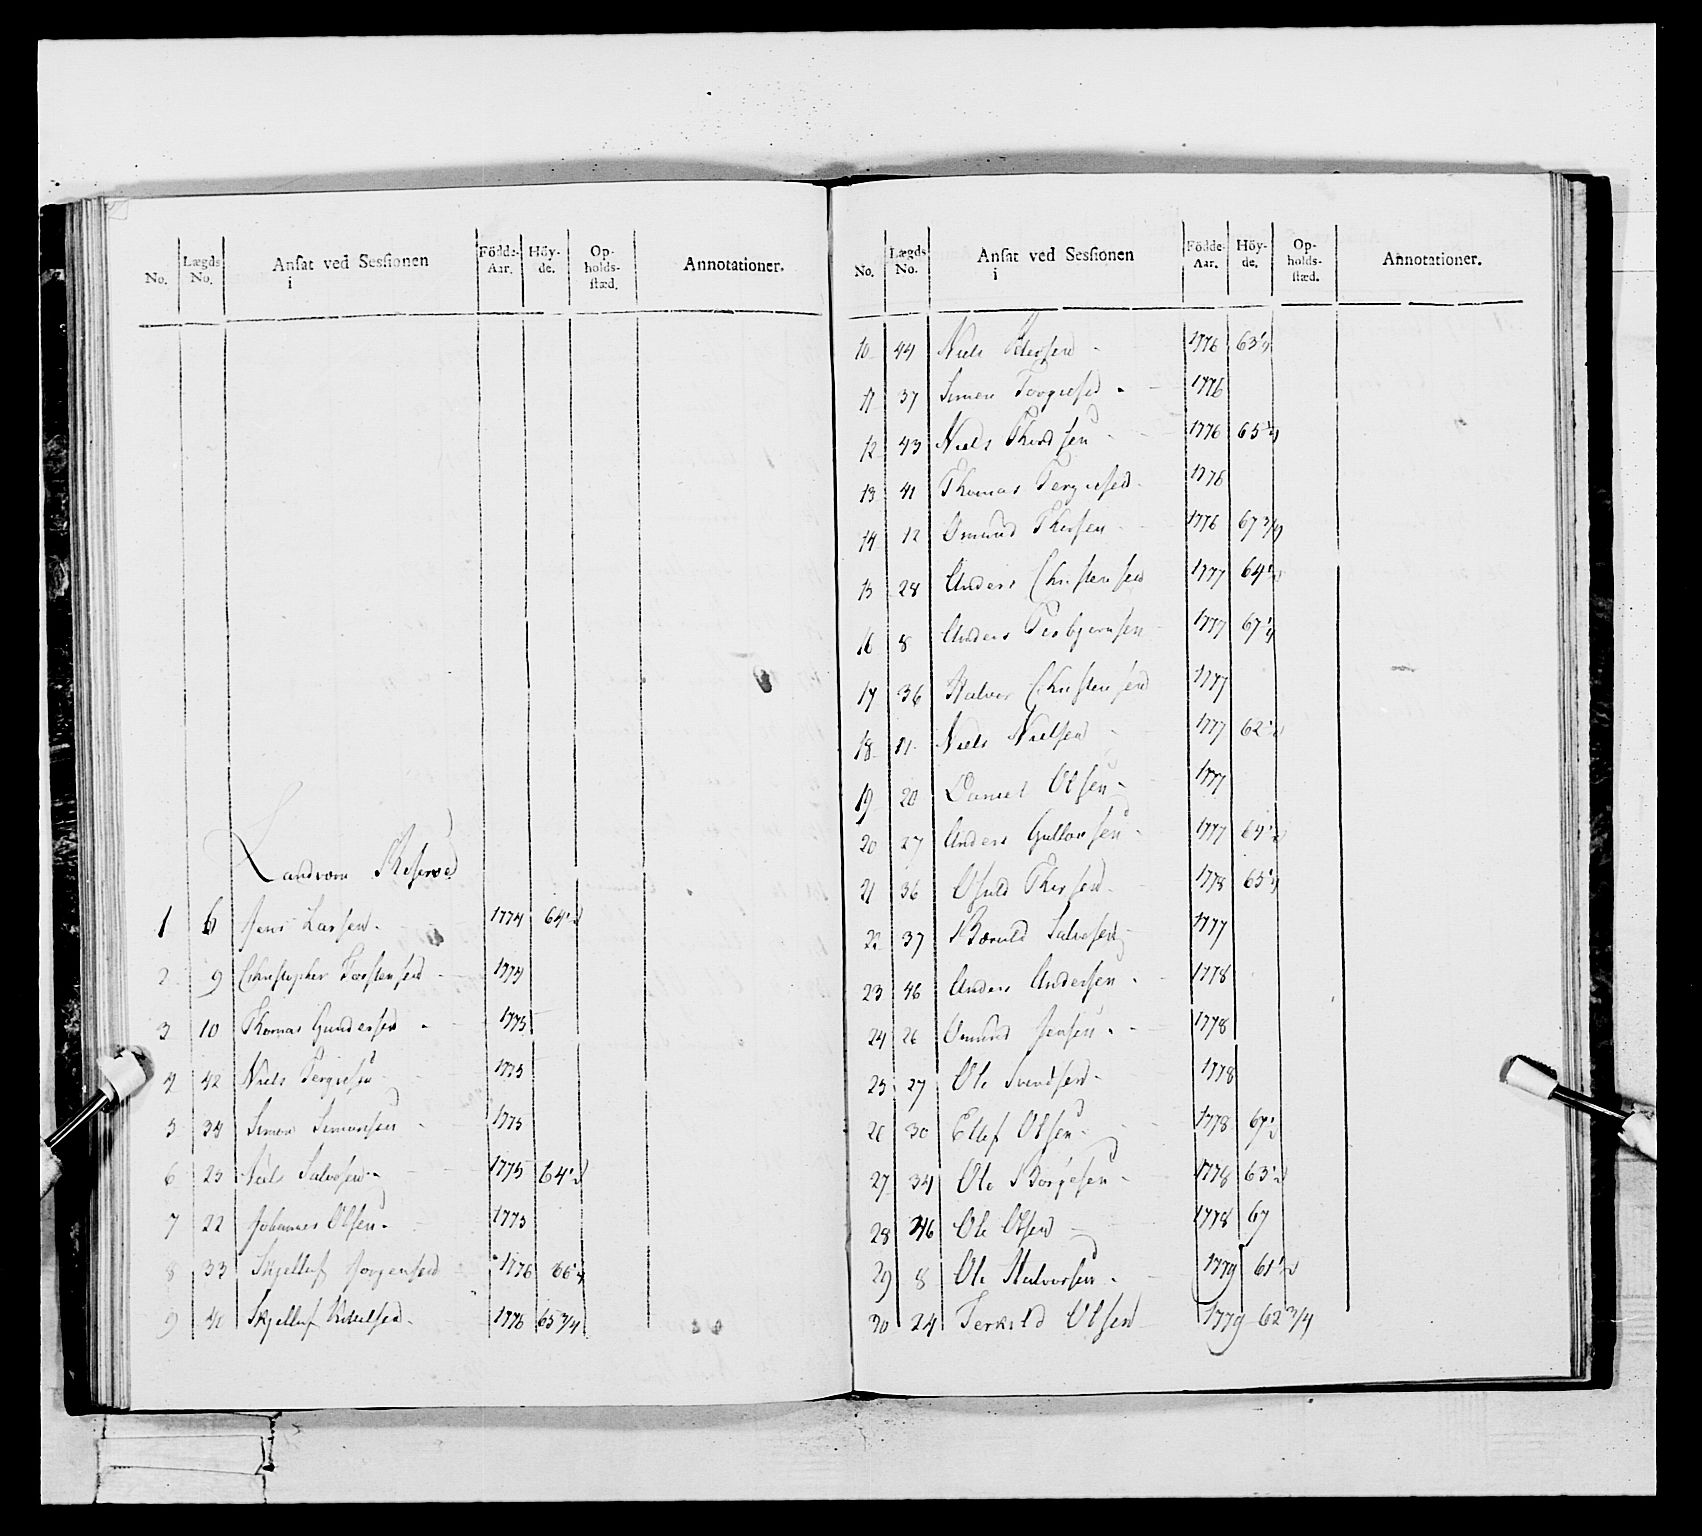 No. Lægds No. Ansat ved Sessionen i Födde-Aar. Höy-de. Op-holds-stæd. Annotationer.
Landværn Reserve
1 6 Jens Larsen 1774 64 1/2
2 9 Christopher Torstensen 1774
3 10 Thomas Gundersen 1775
4 42 Niels Tergiesen 1775
5 34 Simon Simonsen 1775
6 23 Niels Salvesen 1775 64 1/2
7 22 Johannes Olsen 1775
8 33 Skjelluf Jorgensen 1776 66 1/4
9 41 Skjelluf 1776 65 3/4
No. Lægds No. Ansat ved Sessionen i Födde-Aar. Höy-de. Op-holds-stæd. Annotationer.
10 44 Niels Pedersen 1776 63 1/4
11 37 Simon Torgiesen 1776
12 43 Niels 1776 65 1/4
13 41 Thomas Tergiesen 1776
14 12 Omund Thorsen 1776 67 3/4
15 28 Anders Christensen 1777 64 1/2
16 8 Anders Torbjörnsen 1777 67 1/4
17 36 Halvor Christensen 1777
18 11 Niels Nielsen 1777 62 1/2
19 20 Daniel Olsen 1777
20 27 Anders Gullovsen 1777 64 1/2
21 36 Osuld Thorsen 1778 65 1/4
22 37 Salvesen 1777
23 46 Anders Andersen 1778
24 26 Omund Jensen 1778
25 27 Ole Svendsen 1778
26 30 Ellef Olsen 1778 67 1/2
27 34 Ole Börgesen 1778 63 1/2
28 46 Ole Olsen 1778 67
29 8 Ole Halvorsen 1779 61 1/2
30 24 Terkild Olsen 1779 62 3/4